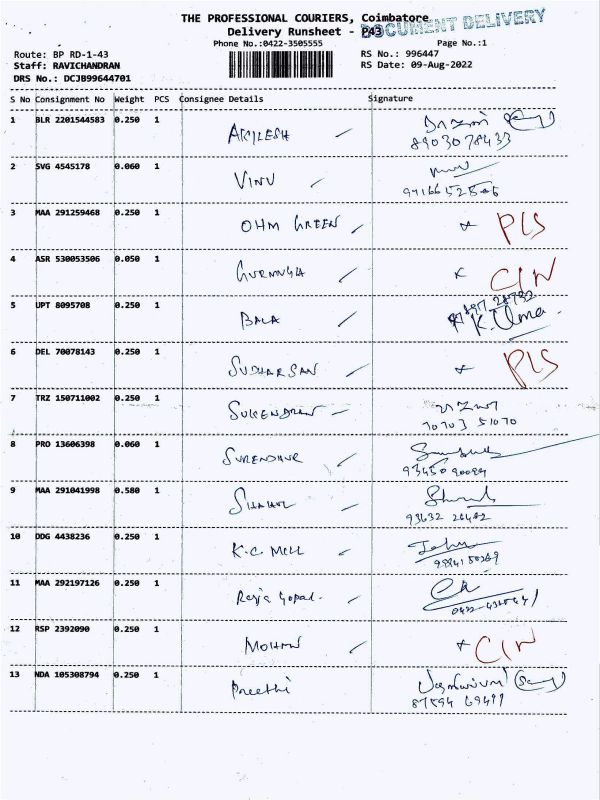 THE PROFESSIONAL COURIERS, Coimbatore
Delivery Runsheet - P43
DOCUMENT DELIVERY
Phone No.:0422-3505555
Page No.:1
Route: BP RD-1-43
RS No.: 996447
Staff: RAVICHANDRAN
RS Date: 09-Aug-2022
DRS No.: DCJB99644701
S No Consignment No Weight PCS Consignee Details Signature
1 BLR 2201544583 0.250 1 AKILESH
8903078433
2 SVG 4545178 0.060 1 VINU
3 MAA 291259468 0.250 1 OHM GREEN PLS
4 ASR 530053506 0.050 1 CIN
5 UPT 8095708 0.250 1 BALA K. Uma
6 DEL 70078143 0.250 1 SUDHARSAN PLS
7 TRZ 150711002 0.250 1 SUKENDRAN
70703 51070
8 PRO 13606398 0.060 1 SURENDHUR
9 MAA 291041998 0.580 1
10 DDG 4438236 0.250 1 K.C. MILL
11 MAA 292197126 0.250 1 Raja Gopal.
12 RSP 2392090 0.250 1 MOHAN CIN
13 NDA 105308794 0.250 1 Preethi
87594 69491